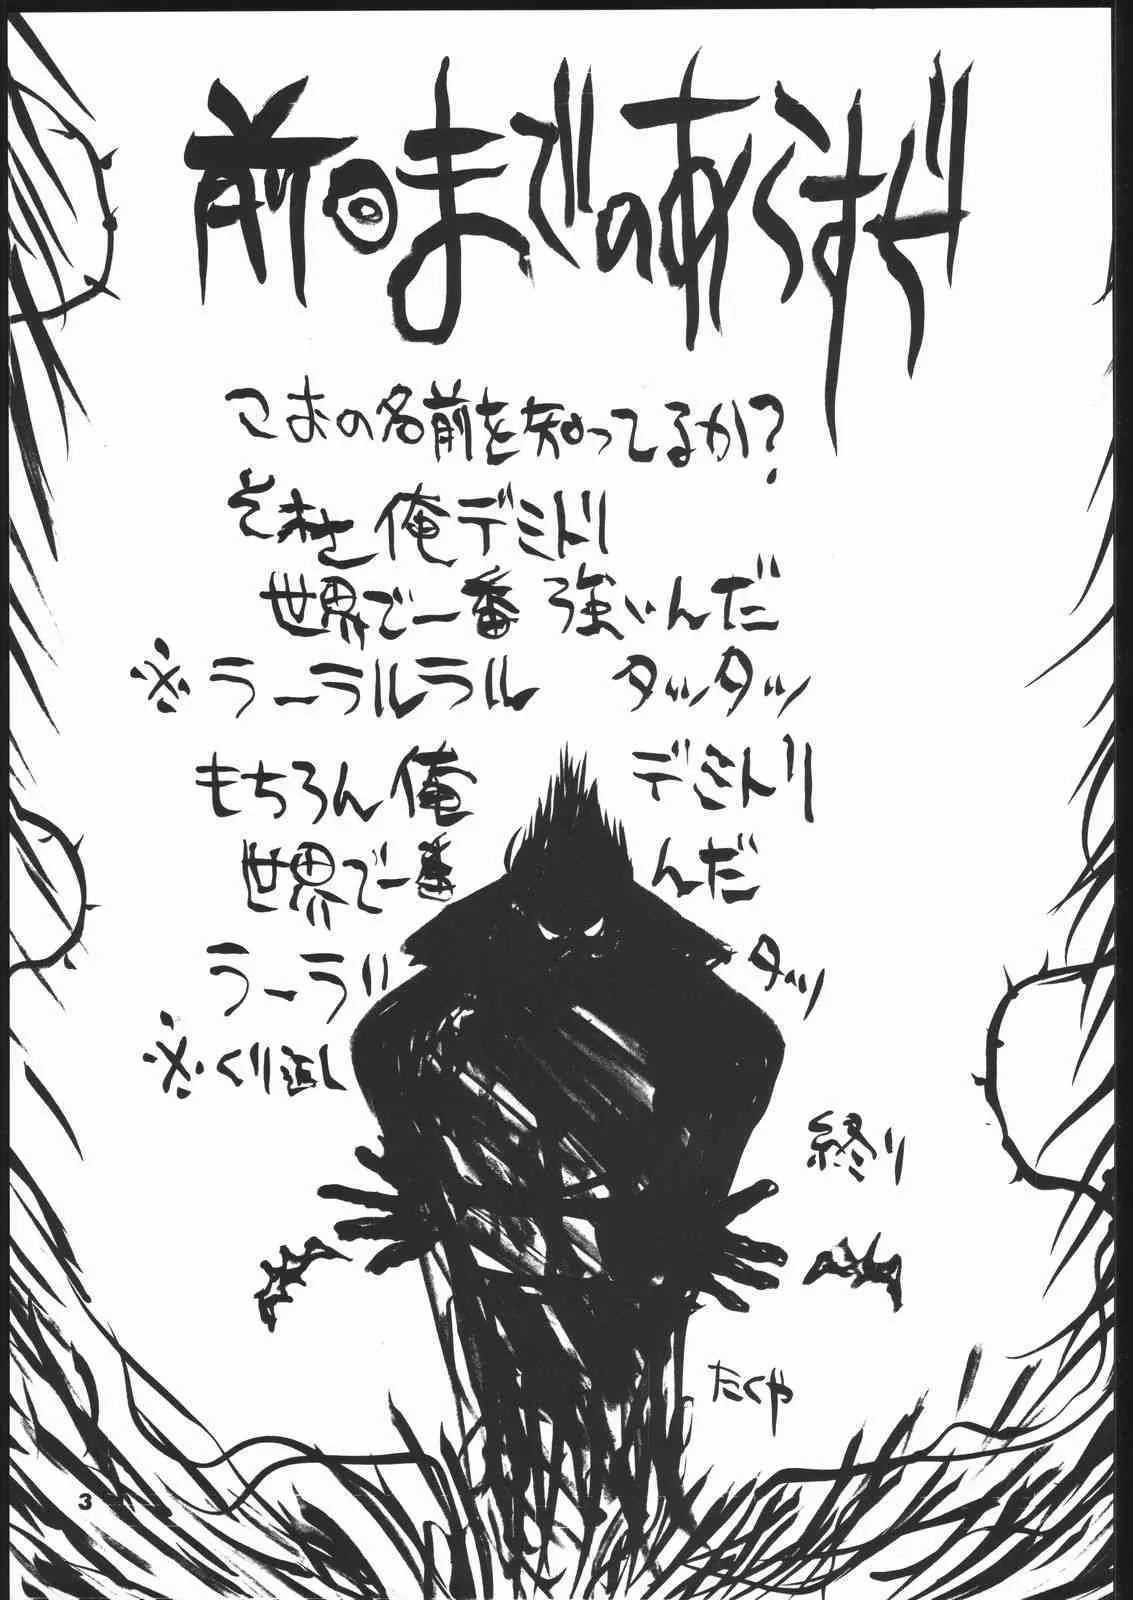 前回までのあらすじ
この名前を知ってるか?
それは俺デミトリ
世界で一番強いんだ
※ラーラルラル タッタッ
もちろん俺 デミトリ
世界で一番 んだ
ラーラ タッ
※くり返し
終り
たくや
3